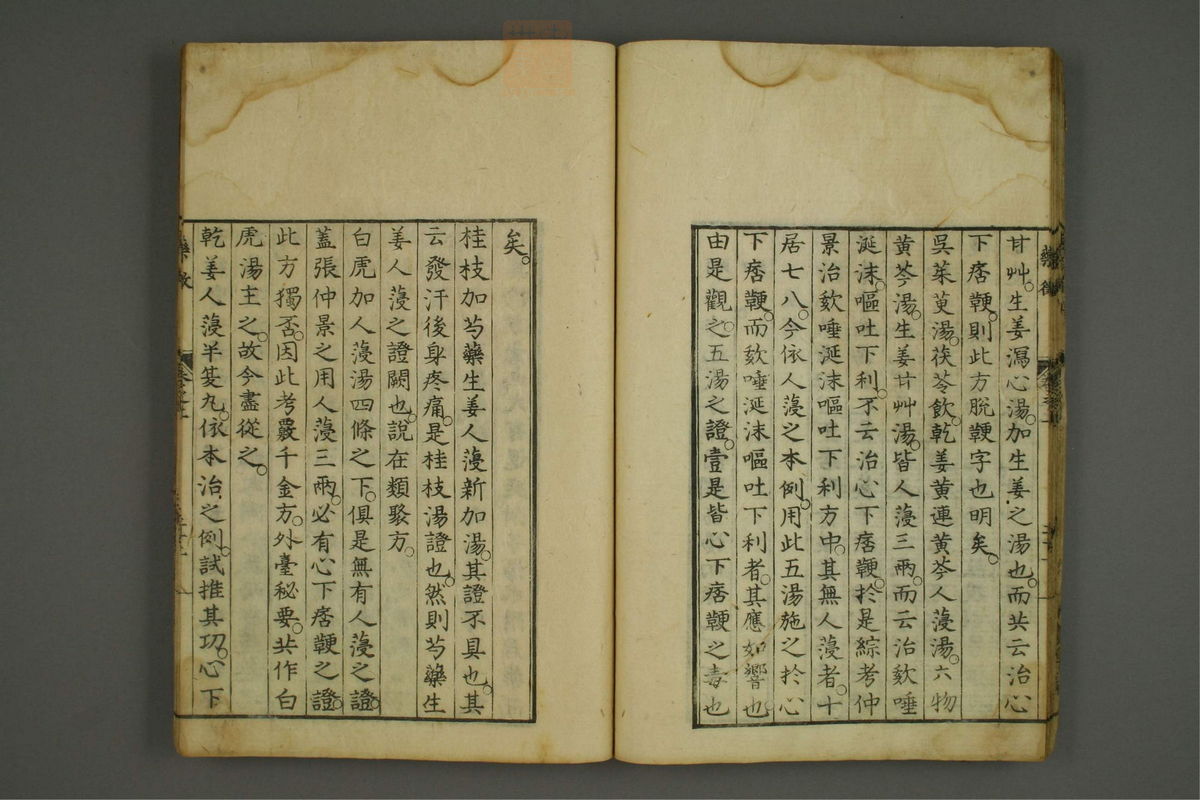 甘艸。生姜瀉心湯。加生姜之湯也。而共云治心
下痞鞕。則此方脫鞕字也明矣。
吳茱萸湯。茯苓飲。乾姜黃連黃芩人薓湯。六物
黃芩湯。生姜甘艸湯。皆人薓三兩。而云治欬唾
涎沫。嘔吐下利。不云治心下痞鞕。於是綜考仲
景治欬唾涎沫嘔吐下利方中。其無人薓者。十
居七八。今依人薓之本例。用此五湯施之於心
下痞鞕。而欬唾涎沫嘔吐下利者。其應如響也。
由是觀之。五湯之證。壹是皆心下痞鞕之毒也
矣。
桂枝加芍藥生姜人薓新加湯。其證不具也。其
云發汗後身疼痛。是桂枝湯證也。然則芍藥生
姜人薓之證闕也。說在類聚方。
白虎加人薓湯四條之下。俱是無有人薓之證。
蓋張仲景之用人薓三兩。必有心下痞鞕之證。
此方獨否。因此考覈千金方。外臺秘要。共作白
虎湯主之。故今盡從之。
乾姜人薓半夏丸。依本治之例。試推其功。心下
藥徵